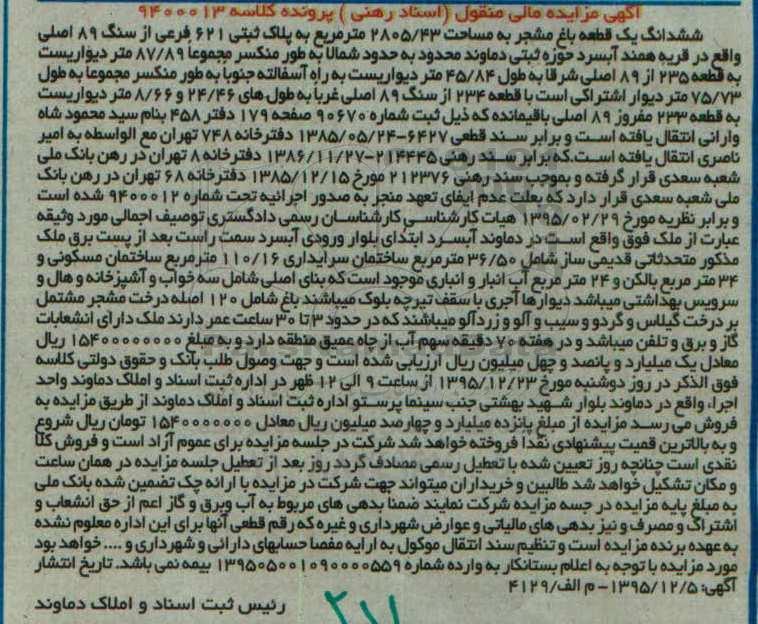 آگهی مزایده مالی منقول (اسناد رهنی) پرونده کلاسه ۹۴۰۰۰۱۳
ششدانگ یک قطعه باغ مشجر به مساحت ۲۸۰۵/۴۳ مترمربع به پلاک ثبتی ۶۲۱ فرعی از سنگ ۸۹ اصلی
واقع در قریه همند آبسرد حوزه ثبتی دماوند محدود به حدود شمالا به طور منکسر مجموعا ۸۷/۸۹ متر دیواریست
به قطعه ۲۳۵ از ۸۹ اصلی شرقا به طول ۴۵/۸۴ متر دیواریست به راه آسفالته جنوبا به طور منکسر مجموعا به طول
۷۵/۷۳ متر دیوار اشتراکی است با قطعه ۲۳۴ از سنگ ۸۹ اصلی غربا به طول های ۲۴/۴۶ و ۸/۶۶ متر دیواریست
به قطعه ۲۳۳ مفروز ۸۹ اصلی باقیمانده که ذیل ثبت شماره ۹۰۶۷۰ صفحه ۱۷۹ دفتر ۴۵۸ بنام سید محمود شاه
وارانی انتقال یافته است و برابر سند قطعی ۶۴۲۷-۱۳۸۵/۰۵/۲۴ دفترخانه ۷۴۸ تهران مع الواسطه به امیر
ناصری انتقال یافته است.که برابر سند رهنی ۲۱۴۴۴۵-۱۳۸۶/۱۱/۲۷ دفترخانه ۸ تهران در رهن بانک ملی
شعبه سعدی قرار گرفته و بموجب سند رهنی ۲۱۲۳۷۶ مورخ ۱۳۸۵/۱۲/۱۵ دفترخانه ۶۸ تهران در رهن بانک
ملی شعبه سعدی قرار دارد که بعلت عدم ایفای تعهد منجر به صدور اجرائیه تحت شماره ۹۴۰۰۰۱۲ شده است
و برابر نظریه مورخ ۱۳۹۵/۰۲/۲۹ هیات کارشناسی کارشناسان رسمی دادگستری توصیف اجمالی مورد وثیقه
عبارت از ملک فوق واقع است در دماوند آبسرد ابتدای بلوار ورودی آبسرد سمت راست بعد از پست برق ملک
مذکور متحدثاتی قدیمی ساز شامل ۳۶/۵۰ مترمربع ساختمان سرایداری ۱۱۰/۱۶ مترمربع ساختمان مسکونی و
۳۴ متر مربع بالکن و ۲۴ متر مربع آب انبار و انباری موجود است که بنای اصلی شامل سه خواب و آشپزخانه و هال و
سرویس بهداشتی میباشد دیوارها آجری با سقف تیرچه بلوک میباشند باغ شامل ۱۲۰ اصله درخت مشجر مشتمل
بر درخت گیلاس و گردو و سیب و آلو و زردآلو میباشند که در حدود ۳ تا ۳۰ ساعت عمر دارند ملک دارای انشعابات
گاز و برق و تلفن میباشد و در هفته ۷۰ دقیقه سهم آب از چاه عمیق منطقه دارد و به مبلغ ۱۵۴۰۰۰۰۰۰۰۰ ریال
معادل یک میلیارد و پانصد و چهل میلیون ریال ارزیابی شده است و جهت وصول طلب بانک و حقوق دولتی کلاسه
فوق الذکر در روز دوشنبه مورخ ۱۳۹۵/۱۲/۲۳ از ساعت ۹ الی ۱۲ ظهر در اداره ثبت اسناد و املاک دماوند واحد
اجراء واقع در دماوند بلوار شهید بهشتی جنب سینما پرستو اداره ثبت اسناد و املاک دماوند از طریق مزایده به
فروش می رسد مزایده از مبلغ پانزده میلیارد و چهارصد میلیون ریال معادل ۱۵۴۰۰۰۰۰۰۰ تومان ریال شروع
و به بالاترین قمیت پیشنهادی نقدا فروخته خواهد شد شرکت در جلسه مزایده برای عموم آزاد است و فروش کلا
نقدی است چنانچه روز تعیین شده با تعطیل رسمی مصادف گردد روز بعد از تعطیل جلسه مزایده در همان ساعت
و مکان تشکیل خواهد شد طالبین و خریداران میتواند جهت شرکت در مزایده با ارائه چک تضمین شده بانک ملی
به مبلغ پایه مزایده در جسه مزایده شرکت نمایند ضمنا بدهی های مربوط به آب وبرق و گاز اعم از حق انشعاب و
اشتراک و مصرف و نیز بدهی های مالیاتی و عوارض شهرداری و غیره که رقم قطعی آنها برای این اداره معلوم نشده
به عهده برنده مزایده است و تنظیم سند انتقال موکول به ارایه مفصا حسابهای دارائی و شهرداری و .... خواهد بود
مورد مزایده با توجه به اعلام بستانکار به وارده شماره ۱۳۹۵۰۵۰۰۱۰۹۰۰۰۰۵۵۹ بیمه نمی باشد. تاریخ انتشار
آگهی: ۱۳۹۵/۱۲/۵ - م الف/۴۱۲۹
رئیس ثبت اسناد و املاک دماوند
۲۱۷